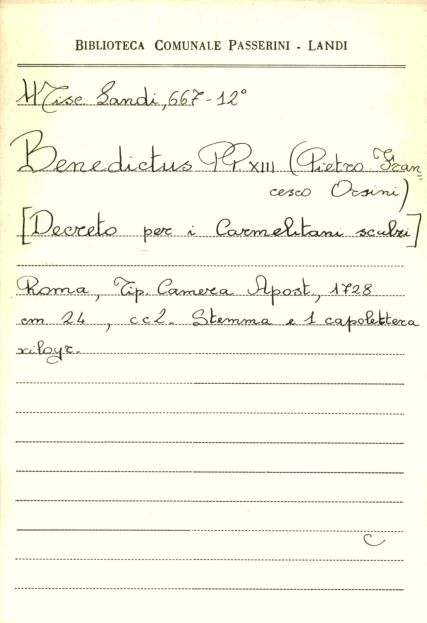 BIBLIOTECA COMUNALE PASSERINI - LANDI
Misc. Landi, 667-12°
Benedictus PP XIII (Pietro Fran=
cesco Orsini)
[Decreto per i Carmelitani scalzi]
Roma, Tip. Camera Apost., 1728
cm 24, cc 2. Stemma e 1 capolettera
xilogr.
C